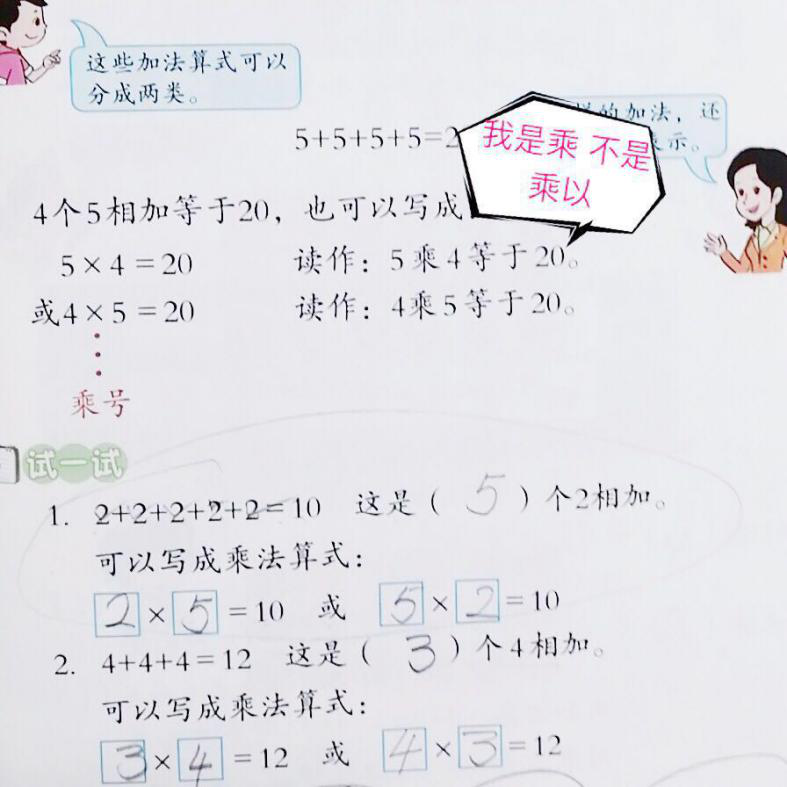 这些加法算式可以
分成两类。
的加法，还
示。
5+5+5+5=2
我是乘 不是
乘以
4个5相加等于20，也可以写成
5×4=20 读作：5乘4等于20。
或4×5=20 读作：4乘5等于20。
乘号
试一试
1. 2+2+2+2+2=10 这是（ 5 ）个2相加。
可以写成乘法算式：
2×5=10 或 5×2=10
2. 4+4+4=12 这是（ 3 ）个4相加。
可以写成乘法算式：
3×4=12 或 4×3=12